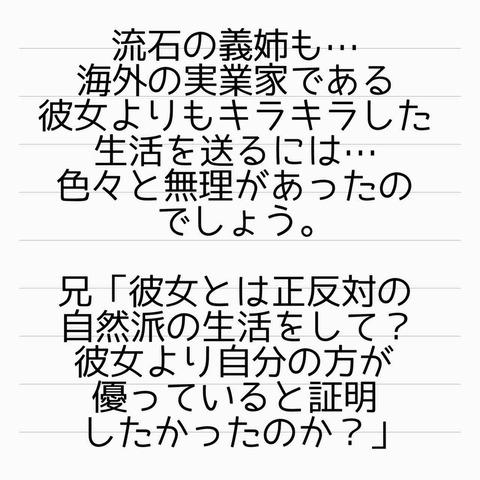 流石の義姉も…
海外の実業家である
彼女よりもキラキラした
生活を送るには…
色々と無理があったの
でしょう。
兄「彼女とは正反対の
自然派の生活をして？
彼女より自分の方が
優っていると証明
したかったのか？」